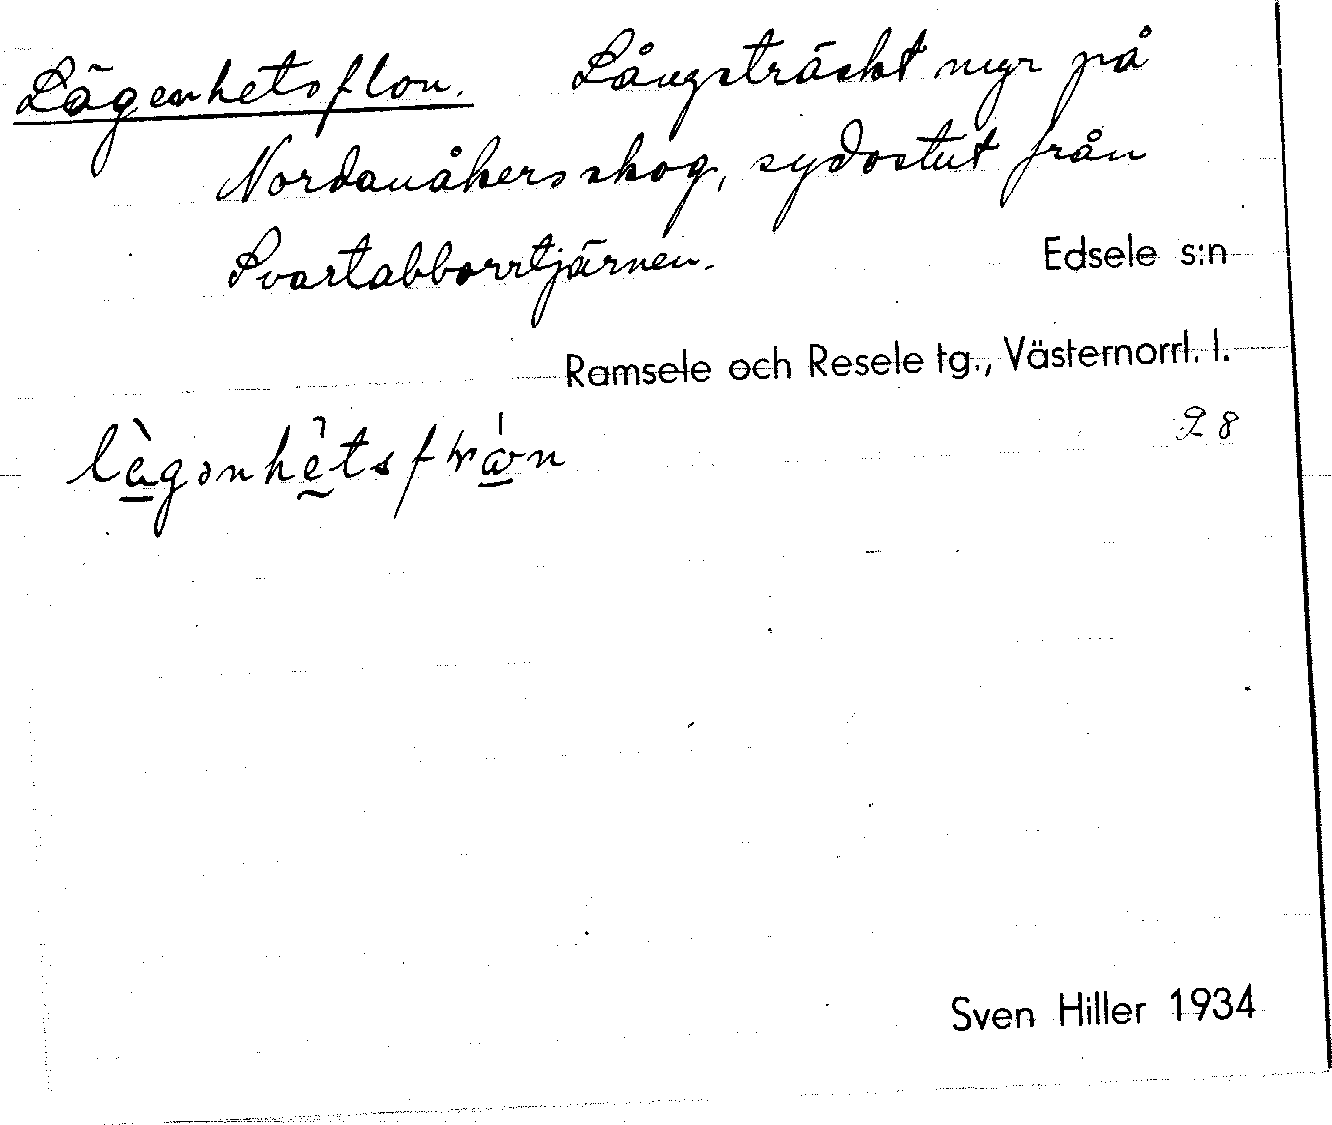 Lägenhetsflon. Långsträckt myr på
Nordanåkers skog, sydostut från
Svartabborrtjärnen.
Edsele s:n
Ramsele och Resele tg., Västernorrl. l.
28
Sven Hiller 1934